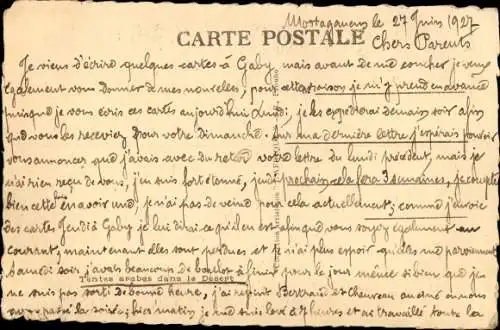 Mostaganem le 27 Juin 1927
CARTE POSTALE
Chers Parents
Je viens d'écrire quelques cartes à Gaby, mais avant de me coucher je veux
également vous donner de mes nouvelles, pour cette raison je m'y prend en avance
puisque je vous écris ces cartes aujourd'hui Lundi, je les expédierai demain soir afin
que vous les receviez pour votre dimanche. Sur ma dernière lettre j'espérais pouvoir
vous annoncer que j'avais avec du retard votre lettre du lundi précédent, mais je
n'ai rien reçu de vous, j'en suis fort étonné, jeudi prochain cela fera 3 semaines, je compte
bien cette fois en avoir une, je n'ai pas de veine pour cela actuellement; comme j'envoie
des cartes Jeudi à Gaby je lui dirai ce qu'il en est afin que vous soyez également au
courant, maintenant elles sont perdues et je n'ai plus espoir qu'elles me parviennent
Samedi soir j'avais beaucoup de boulot à finir pour le jour même si bien que je
Tentes arabes dans le Désert
ne suis pas sorti de bonne heure, j'ai rejoint Bertrand et Cheuveau au ciné où nous
avons passé la soirée; hier matin je me suis levé à 7 heures et ai travaillé toute la